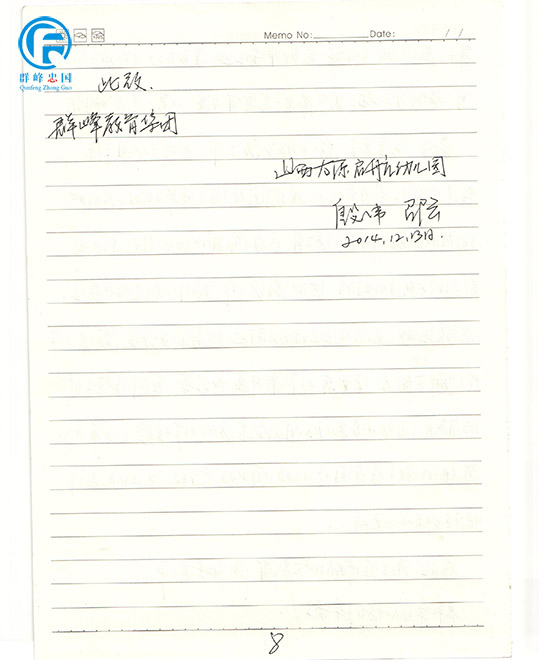 Memo No: Date: / /
群峰忠国
Qunfeng Zhong Guo
此致.
群峰教育集团
山西太原启航幼儿园
殷伟 邵云
2014.12.13日.
8